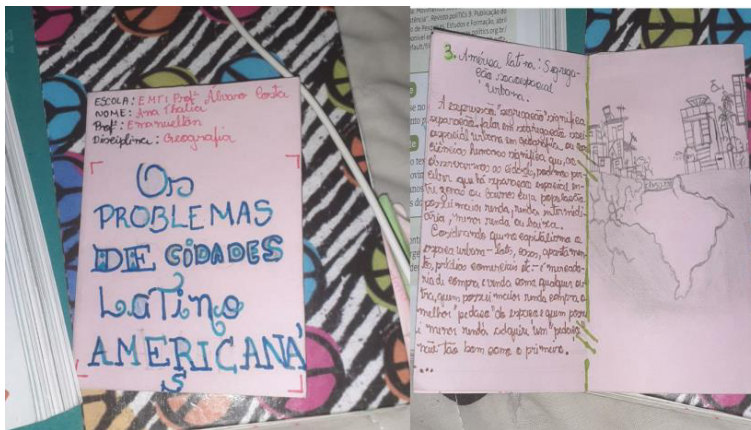 ESCOLA: EMTI Prof. Álvaro Costa
NOME: Ana Thalia
Prof: Emanuellton
Disciplina: Geografia
Os
PROBLEMAS
DE CIDADES
LATINO
AMERICANA
S
3. América latina: Segrega-
ção socioespacial
urbana.
A expressão "segregação" significa
separação, falar em segregação
espacial urbana em geografia, ou nas
ciências humanas significa que, ao
observarmos as cidades, podemos
que há separação espacial en-
tre zonas ou bairros cuja população
possui maior renda, renda intermedi-
ária, menor renda ou baixa.
Considerando que no capitalismo o
espaço urbano - lotes, casas, apartamen-
to, prédios comerciais etc - é mercado-
ria de compra e venda como qualquer ou-
tra, quem possui maior renda compra o
melhor "pedaço" do espaço e quem possu
i menor renda adquire um "pedaço"
não tão bom como o primeiro.
...